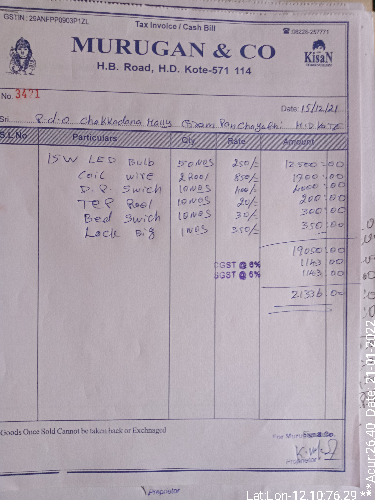 GSTIN : 29ANFPP0903P1ZL
Tax Invoice / Cash Bill
08228-257771
MURUGAN & CO
KisaN
H.B. Road, H.D. Kote-571 114
No. 3421
Date: 15/12/21
Sri P.d.o Chakkodana Hally Gram Panchayathi H.D.KOTE
S.L.No Particulars Qty Rate Amount
15W LED Bulb 50NOS 250/- 12500.00
Coil wire 2 850/- 1700.00
D.P. Swich 10NOS 400/- 4000.00
TEP Rool 10NOS 20/- 200.00
Bed Swich 10NOS 30/- 300.00
Lock Big 1NOS 350/- 350.00
19050.00
CGST @ 6% 1143.00
SGST @ 6% 1143.00
21336.00
Goods Once Sold Cannot be taken back or Exchnaged
For Murugan & Co
Proprietor
Proprietor
Lat Lon-12.10:76.29
***Acur:26.40 Date, 21-01-2022